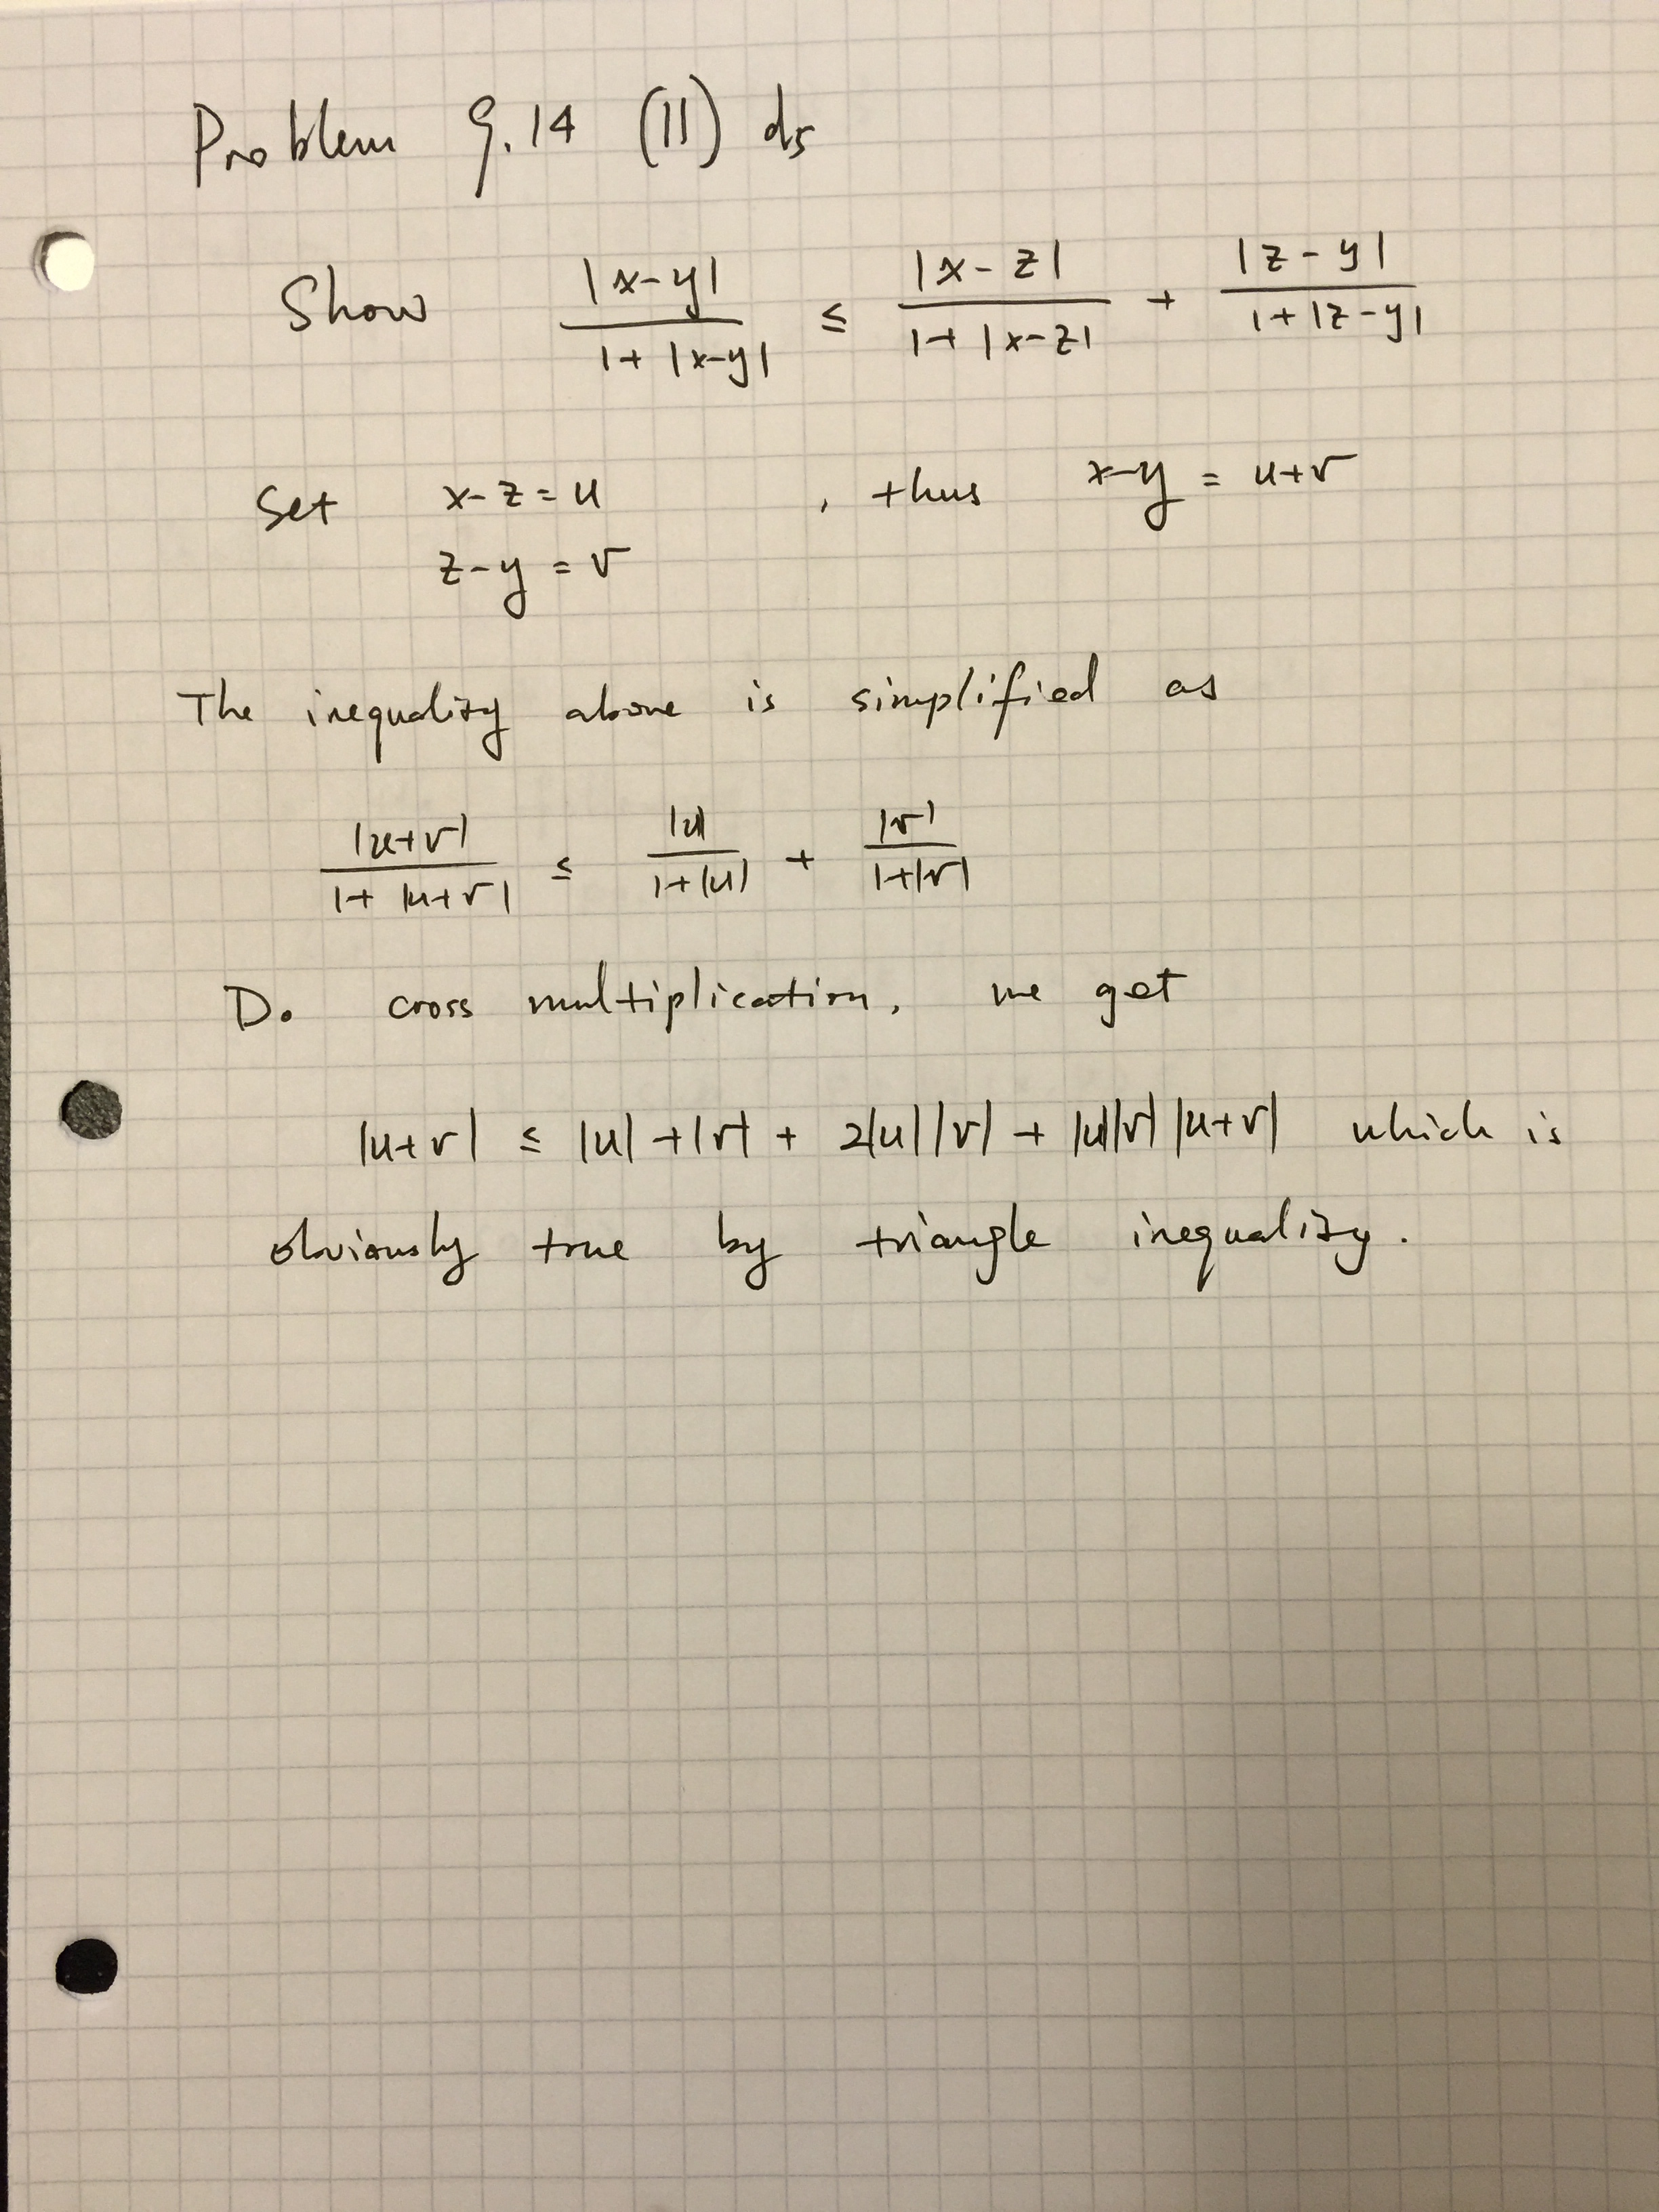 Problem 9.14 (11) d5
Show |x-y| / 1+|x-y| ≤ |x-z| / 1+|x-z| + |z-y| / 1+|z-y|
Set x-z=u , thus x-y = u+v
z-y = v
The inequality above is simplified as
|u+v| / 1+|u+v| ≤ |u| / 1+|u| + |v| / 1+|v|
Do cross multiplication, we get
|u+v| ≤ |u|+|v| + 2|u||v| + |u||v||u+v| which is
obviously true by triangle inequality.